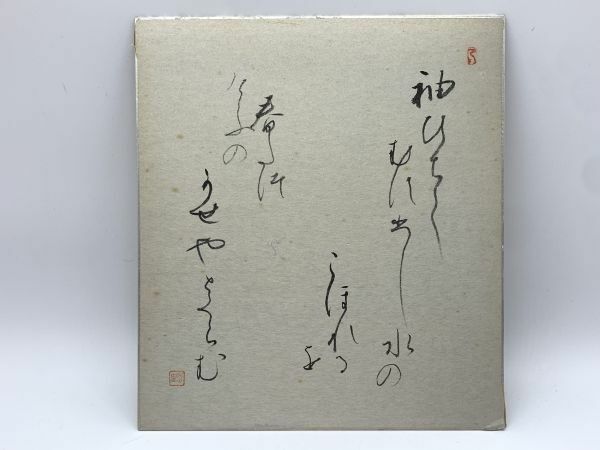 袖ひちて
むすひし水の
こほれる
を
春たつ
けふの
かせやとくらむ